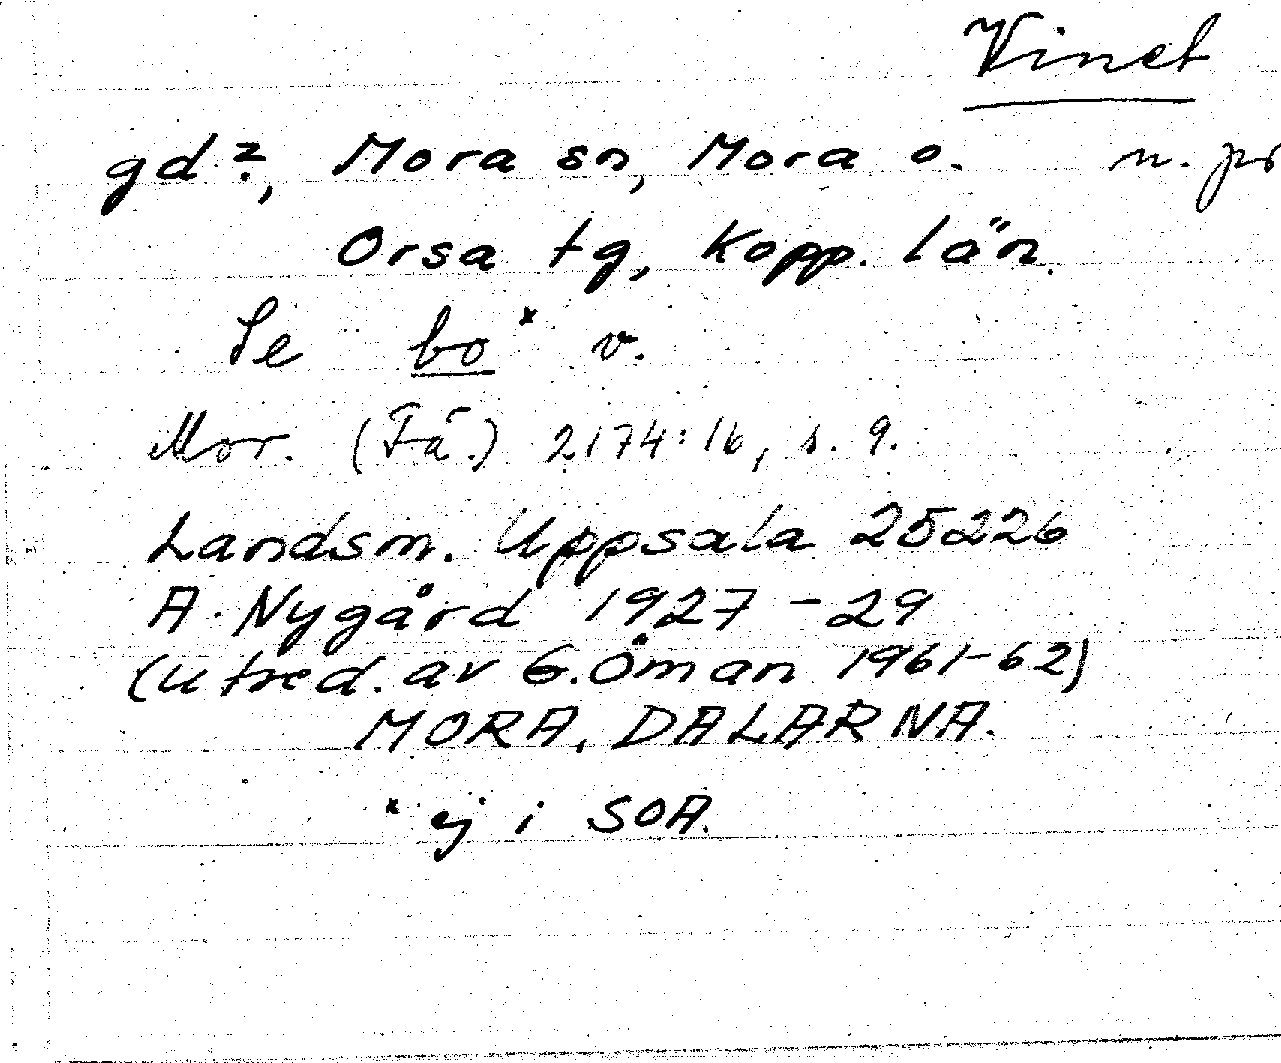 Vinet
gd?, Mora sn, Mora o. n. pr
Orsa tg, Kopp. län.
Se bo* v.
Mor. (Fä.) 2174:16, s. 9.
Landsm. Uppsala 25226
A. Nygård 1927-29
(utred. av G. Öman 1961-62)
MORA, DALARNA.
* ej i SOA.